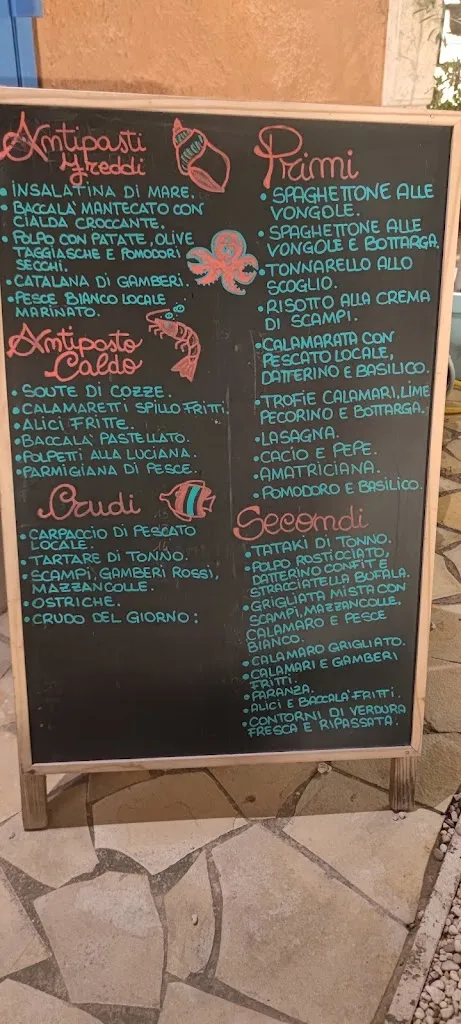 Antipasti
freddi
• INSALATINA DI MARE.
• BACCALA' MANTECATO CON
CIALDA CROCCANTE.
• POLPO CON PATATE, OLIVE
TAGGIASCHE E POMODORI
SECCHI.
• CATALANA DI GAMBERI.
• PESCE BIANCO LOCALE
MARINATO.
Antipasto
Caldo
• SOUTE DI COZZE.
• CALAMARETTI SPILLO FRITTI.
• ALICI FRITTE.
• BACCALA' PASTELLATO.
• POLPETTI ALLA LUCIANA.
• PARMIGIANA DI PESCE.
Crudi
• CARPACCIO DI PESCATO
LOCALE.
• TARTARE DI TONNO.
• SCAMPI, GAMBERI ROSSI,
MAZZANCOLLE.
• OSTRICHE.
• CRUDO DEL GIORNO:
Primi
• SPAGHETTONE ALLE
VONGOLE.
• SPAGHETTONE ALLE
VONGOLE E BOTTARGA.
• TONNARELLO ALLO
SCOGLIO.
• RISOTTO ALLA CREMA
DI SCAMPI.
• CALAMARATA CON
PESCATO LOCALE,
DATTERINO E BASILICO.
• TROFIE CALAMARI, LIME
PECORINO E BOTTARGA.
• LASAGNA.
• CACIO E PEPE.
• AMATRICIANA.
• POMODORO E BASILICO.
Secondi
• TATAKI DI TONNO.
• POLPO ROSTICCIATO,
DATTERINO CONFIT E
STRACCIATELLA BUFALA.
• GRIGLIATA MISTA CON
SCAMPI, MAZZANCOLLE,
CALAMARO E PESCE
BIANCO.
• CALAMARO GRIGLIATO.
• CALAMARI E GAMBERI
FRITTI.
• PARANZA.
• ALICI E BACCALA' FRITTI.
• CONTORNI DI VERDURA
FRESCA E RIPASSATA.